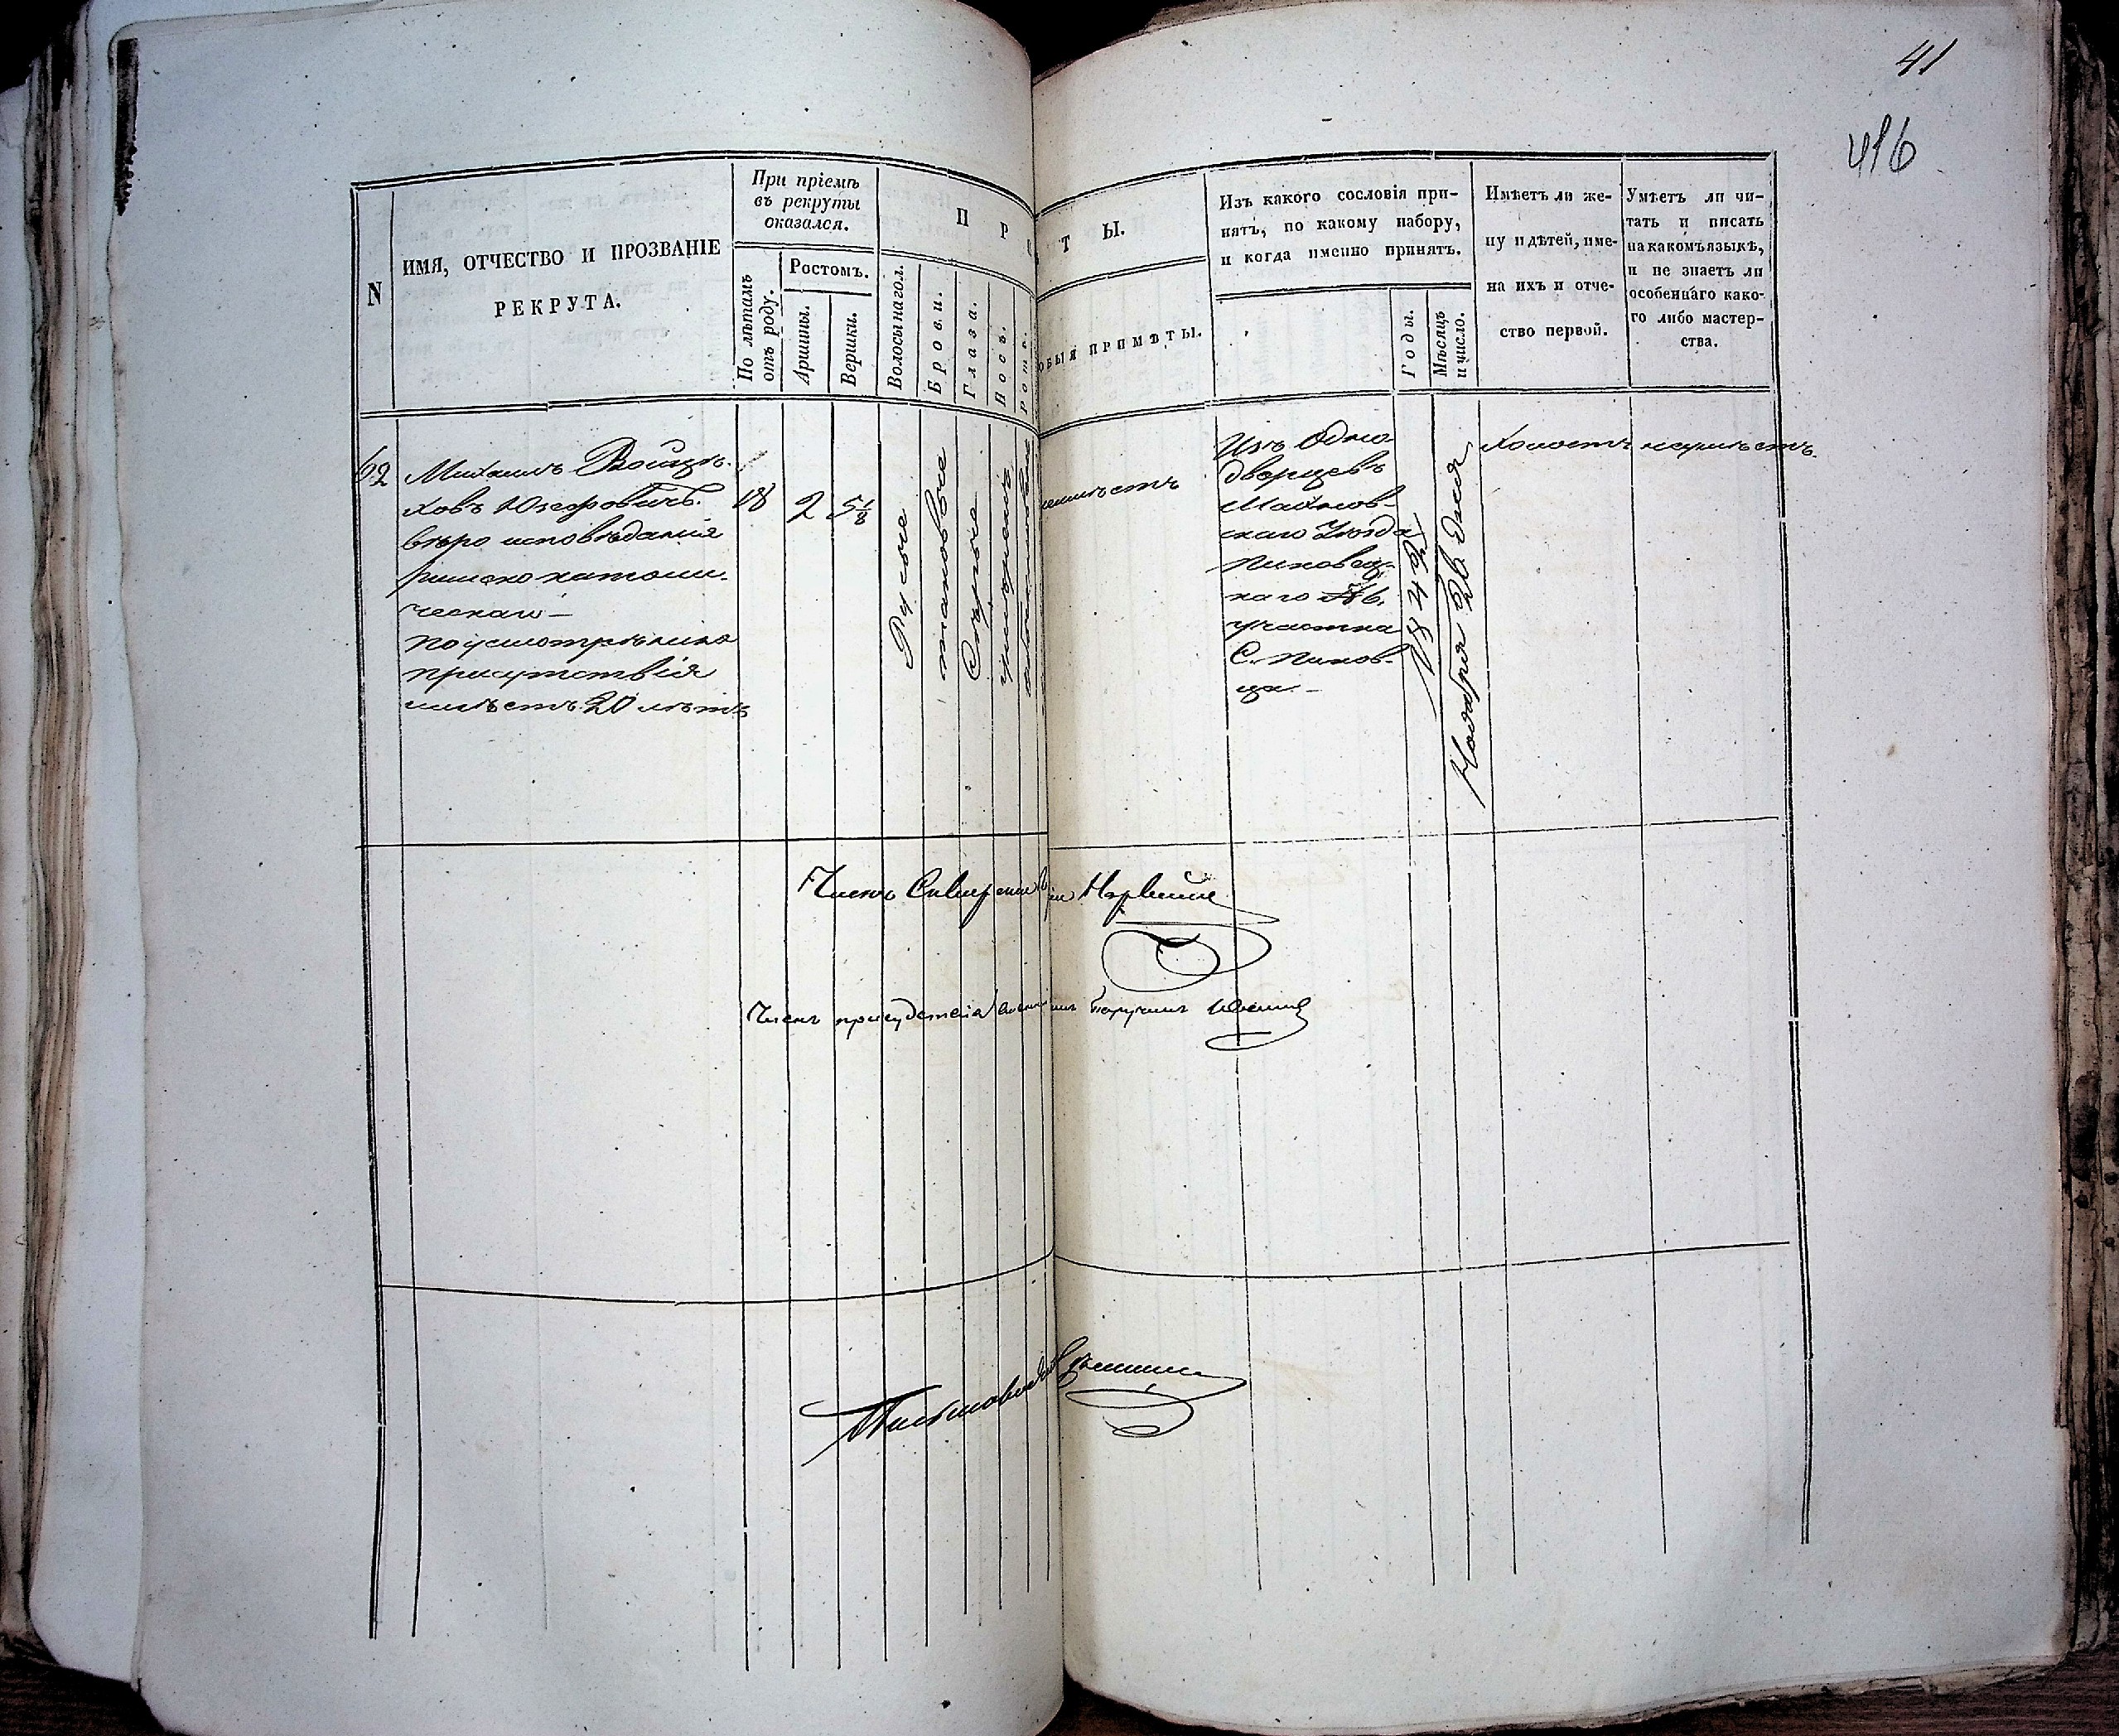 41
416
N
ИМЯ, ОТЧЕСТВО И ПРОЗВАНІЕ
РЕКРУТА.
При пріемѣ
въ рекруты
оказался.
По лѣтамъ
отъ роду.
Ростомъ.
Аршины.
Вершки.
П Р
Т Ы.
Волосы на гол.
Брови.
Глаза.
Носъ.
Ротъ.
ОБЫЯ ПРИМѢТЫ.
Изъ какого сословія при-
нятъ, по какому набору,
и когда именно принятъ.
Годы.
Мѣсяцъ
и число.
Имѣетъ ли же-
ну и дѣтей, име-
на ихъ и отче-
ство первой.
Умѣетъ ли чи-
тать и писать
на какомъ языкѣ,
и не знаетъ ли
особеннаго како-
го либо мастер-
ства.
62
Михаилъ Войцѣ-
ховъ Юзефовичъ.
вѣро исповѣданія
римско католи-
ческаго —
По усмотрѣнію
присутствія
имѣетъ 20 лѣтъ
18
2
5 1/8
Русые
таковые
Сѣрые
неимѣетъ
Изъ Одно-
дворцевъ
скаго Уѣзда
Пиковец-
каго № 6.
участка
С. Пиков-
ца —
184
Ноября 26 дня
Холостъ
неумѣетъ.
Членъ
Членъ присудствія